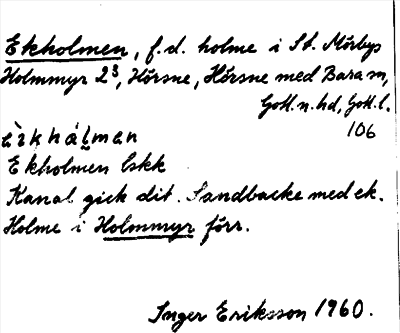 Ekholmen, f.d. holme i St. Mörbys
Holmmyr 2³, Hörsne, Hörsne med Bara sn,
Gotl. n. hd, Gotl. l.
106
Ekholmen Eskk
Kanal gick dit. Sandbacke med ek.
Holme i Holmmyr förr.
Inger Eriksson 1960.